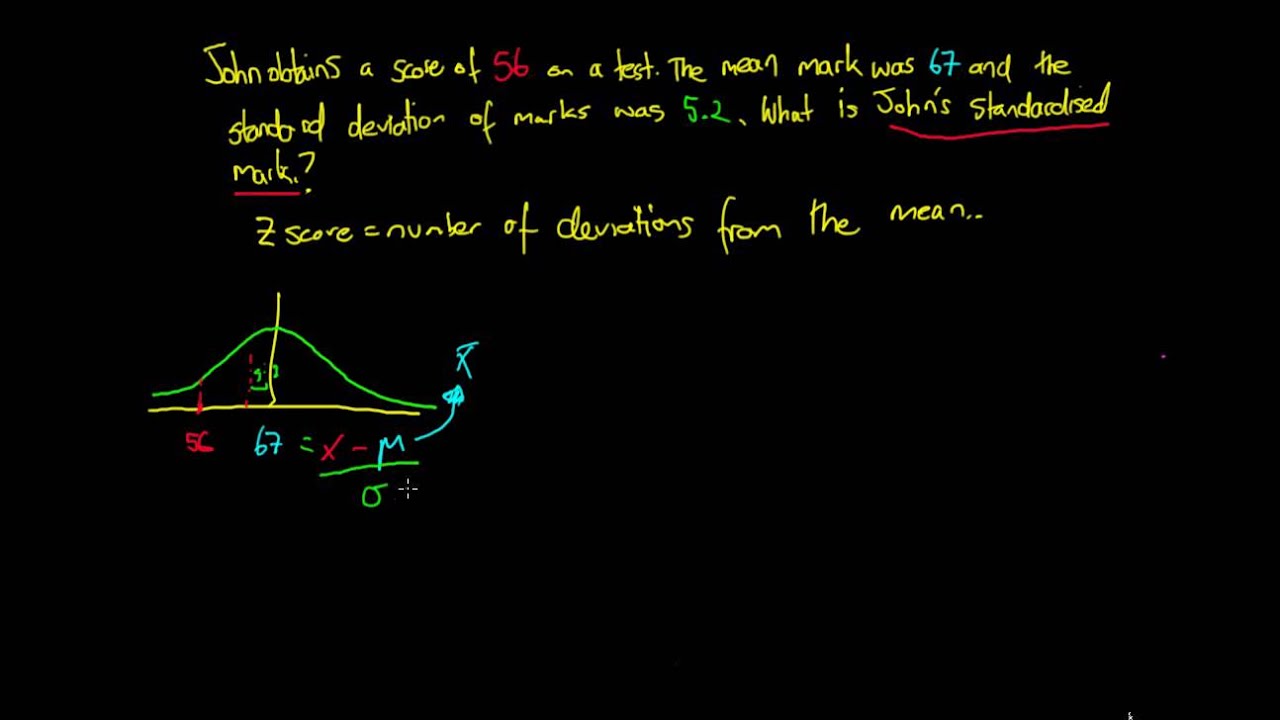 John obtains a score of 56 on a test. The mean mark was 67 and the
standard deviation of marks was 5.2. What is John's standardised
mark.?
Z score = number of deviations from the mean..
x̄
56 67 = x - μ
σ